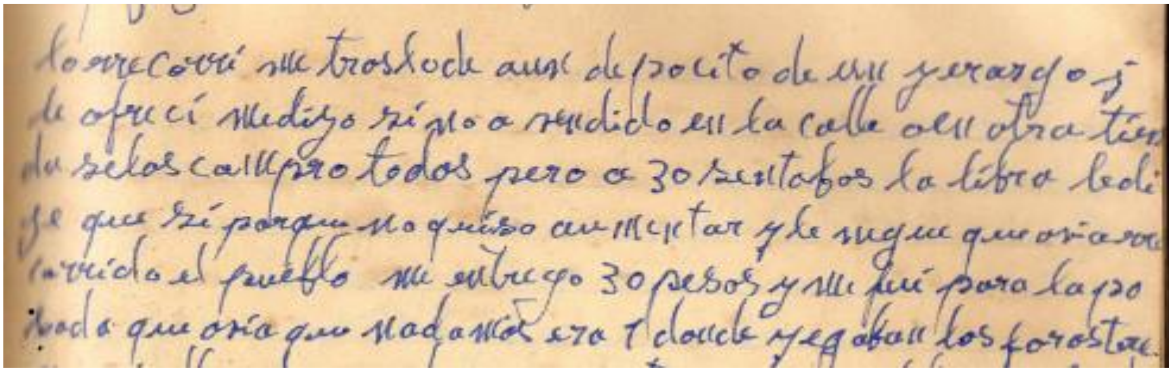 lo rrecorrí me troslode aun depocito de un yerargo y
le ofrecí medigo si no a sendido en la calle oen otra tien
da selos campro todos pero a 30 sentabos la libra ledi
ge que si porque no quiso aumentar y le negue que oviarre
corrido el pueblo me entrego 30 pesos y me fui para lapo
sada que ovia que nadamás era 1 donde yegaban los foroste